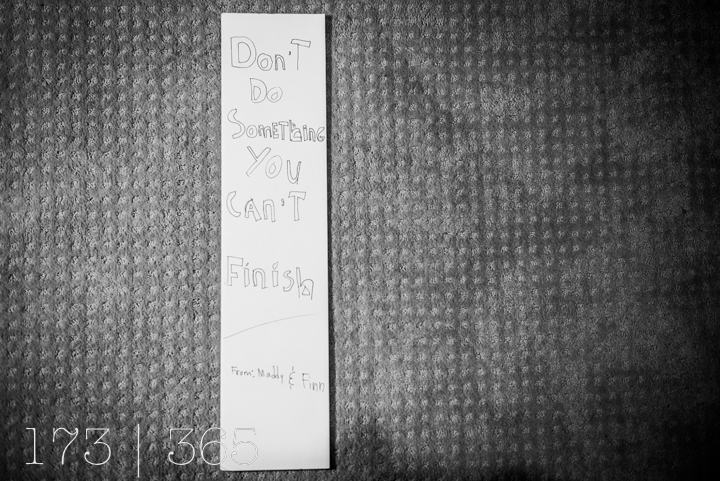 Don't
Do
Something
You
Can't
Finish
From: Maddy & Finn
173 | 365